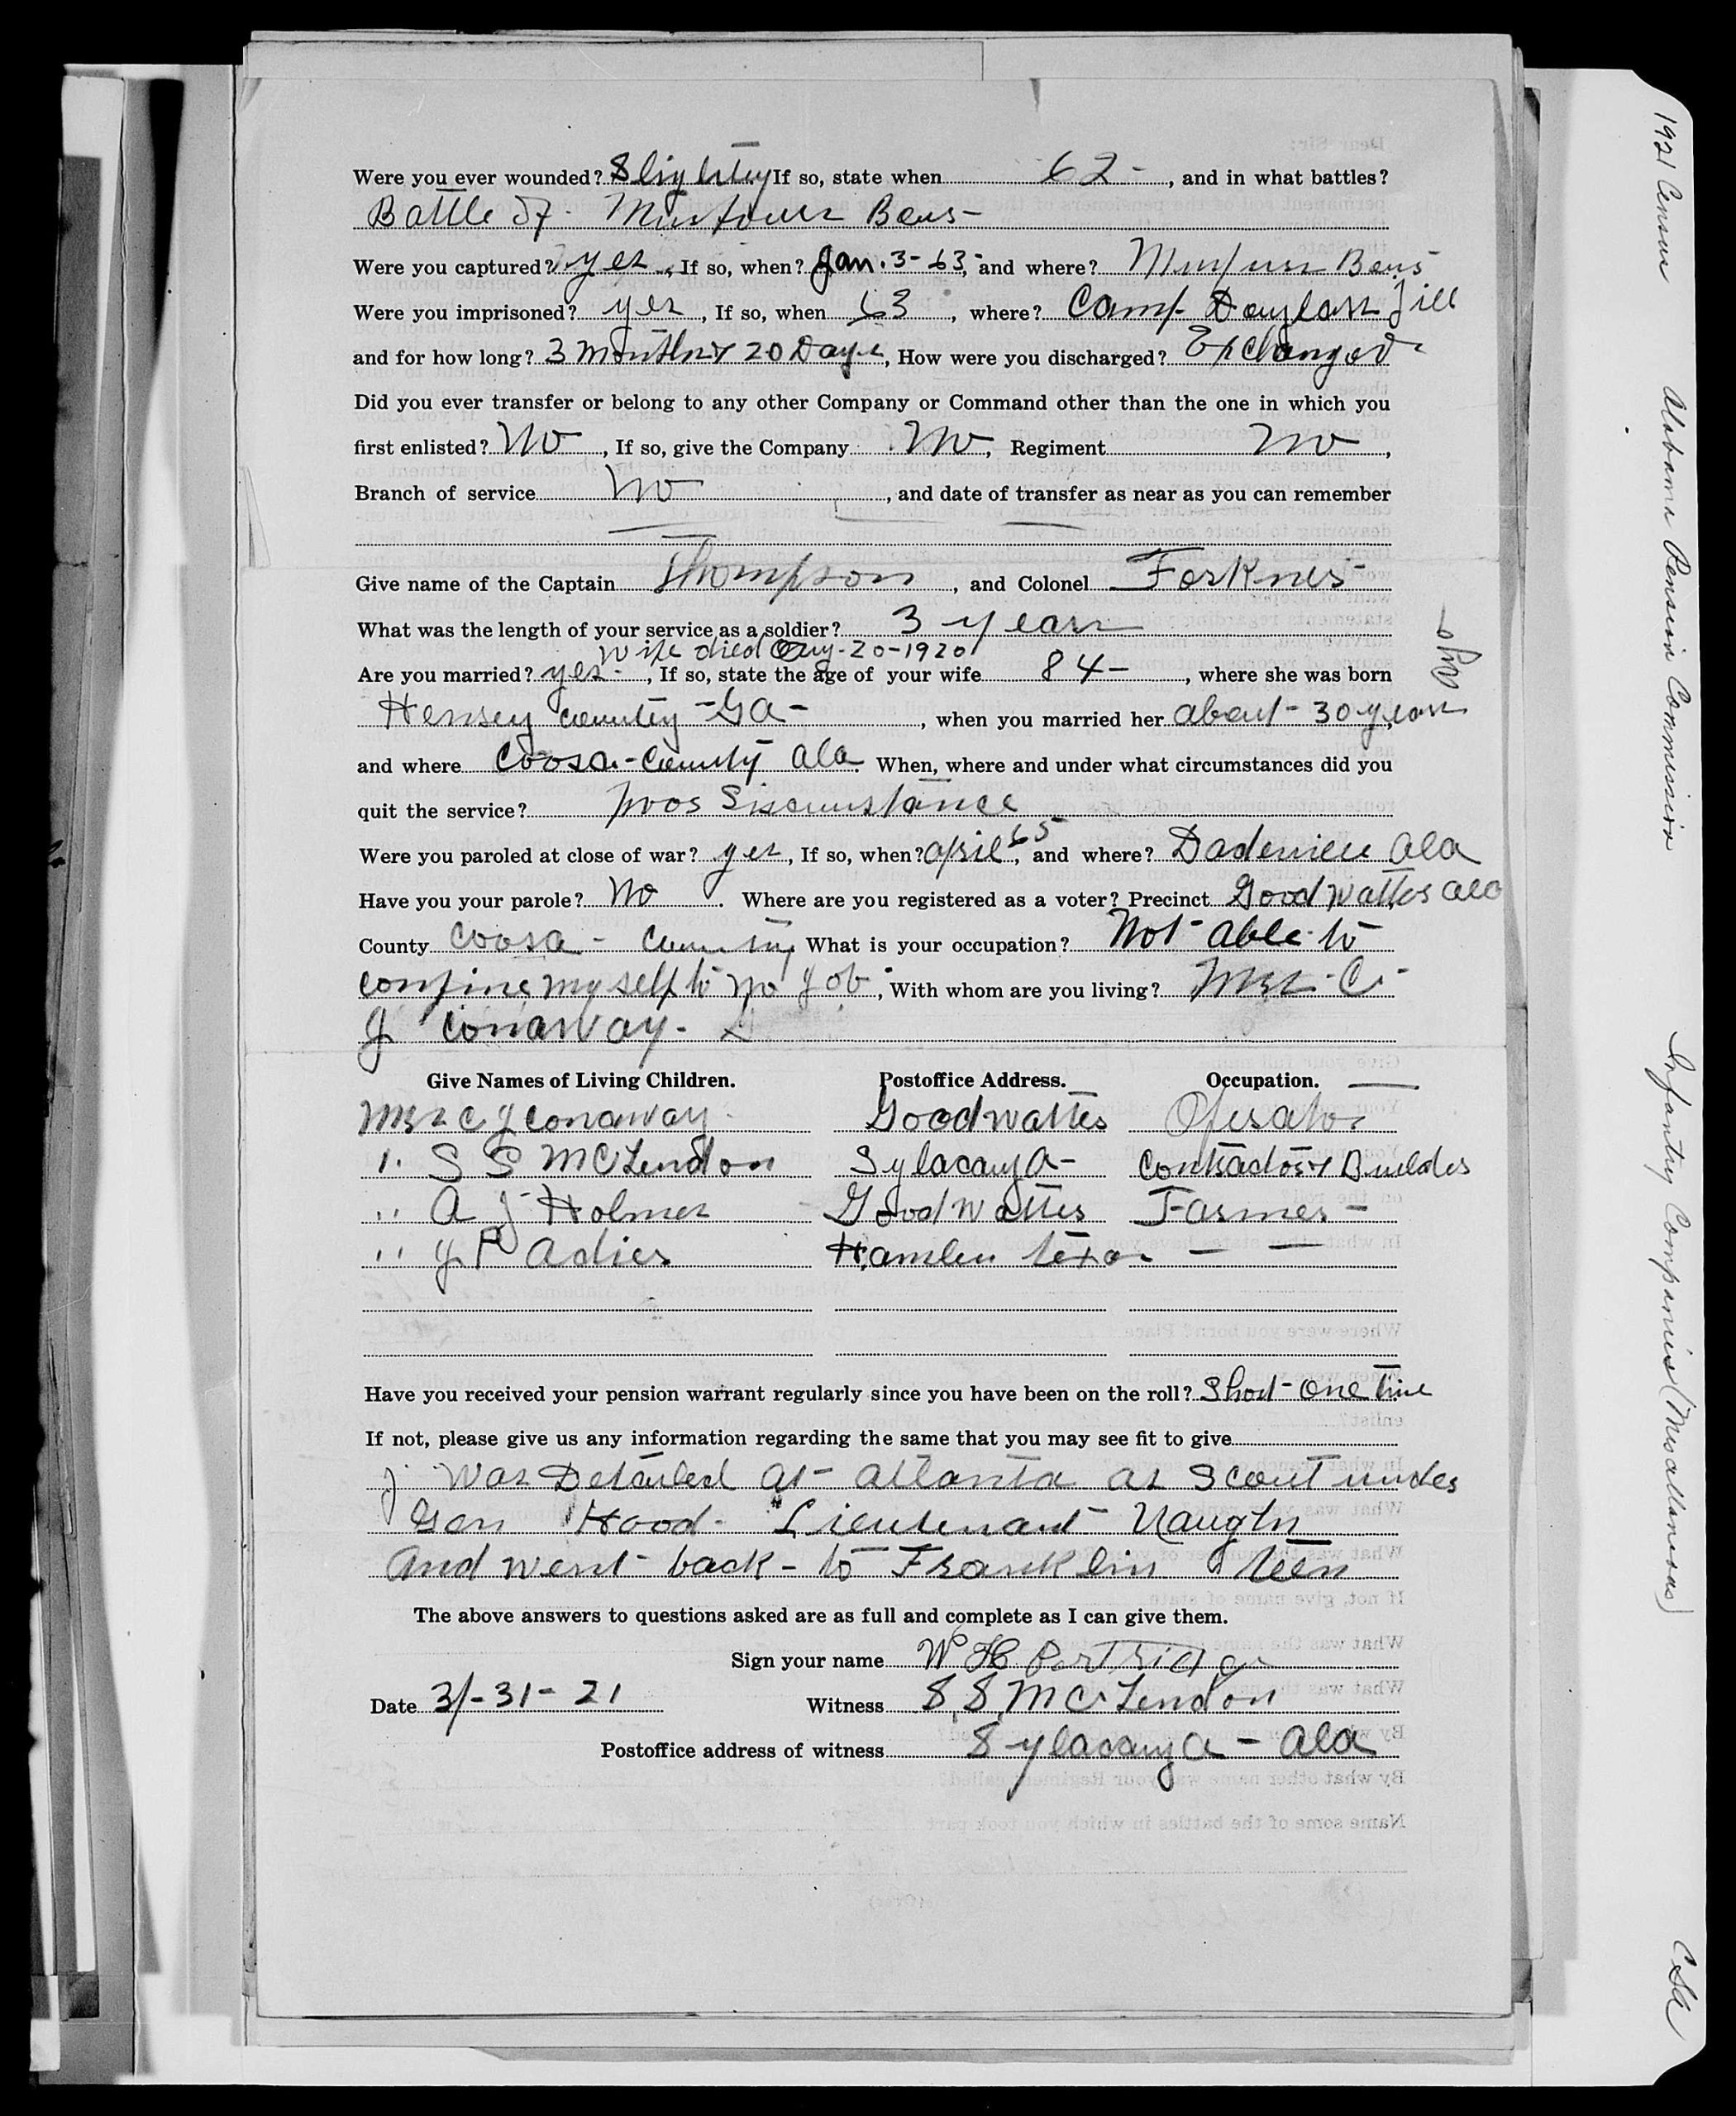 Were you ever wounded? Slightly If so, state when 62 - , and in what battles?
Battle of Murfours Bours -
Were you captured? yes , If so, when? Jan. 3 - 63, and where? Murfurs Bours
Were you imprisoned? yes , If so, when 63 , where? Camp Douglass Ill
and for how long? 3 months & 20 Days , How were you discharged? Exchanged
Did you ever transfer or belong to any other Company or Command other than the one in which you
first enlisted? No , If so, give the Company No , Regiment No ,
Branch of service No , and date of transfer as near as you can remember
Give name of the Captain Thompson , and Colonel Forkner
What was the length of your service as a soldier? 3 years
wife died Aug - 20 - 1920
Are you married? yes - , If so, state the age of your wife 84 - , where she was born
Hensey County - Ga - , when you married her about - 30 years
ago
and where Coosa - County Ala . When, where and under what circumstances did you
quit the service? poor Sircumstance
Were you paroled at close of war? yes , If so, when? April 65 , and where? Dadeville Ala
Have you your parole? No . Where are you registered as a voter? Precinct Good Watter Ala
County Coosa - County What is your occupation? Not able to
confine my self to no Job , With whom are you living? Mrs - C
J Conaway -
Give Names of Living Children. Postoffice Address. Occupation.
Mrs C J Conaway Goodwatter Operator
" S S McLendon Sylacauga - Contractor & Builder
" A J Holmes Goodwatter Farmer -
" J P Adier Hamlen Texas - -
Have you received your pension warrant regularly since you have been on the roll? Short - One time
If not, please give us any information regarding the same that you may see fit to give
I was Detailed at - Atlanta as Scout under
Gen Hood - Lieutenant Vaughn
And went back - to Franklin Teen
The above answers to questions asked are as full and complete as I can give them.
Sign your name W H Partridge
Date 3/-31-21 Witness S. S. McLendon
Postoffice address of witness Sylacauga - Ala
1921 Census Alabama Pension Commission Infantry Companies (Miscellaneous) CSA